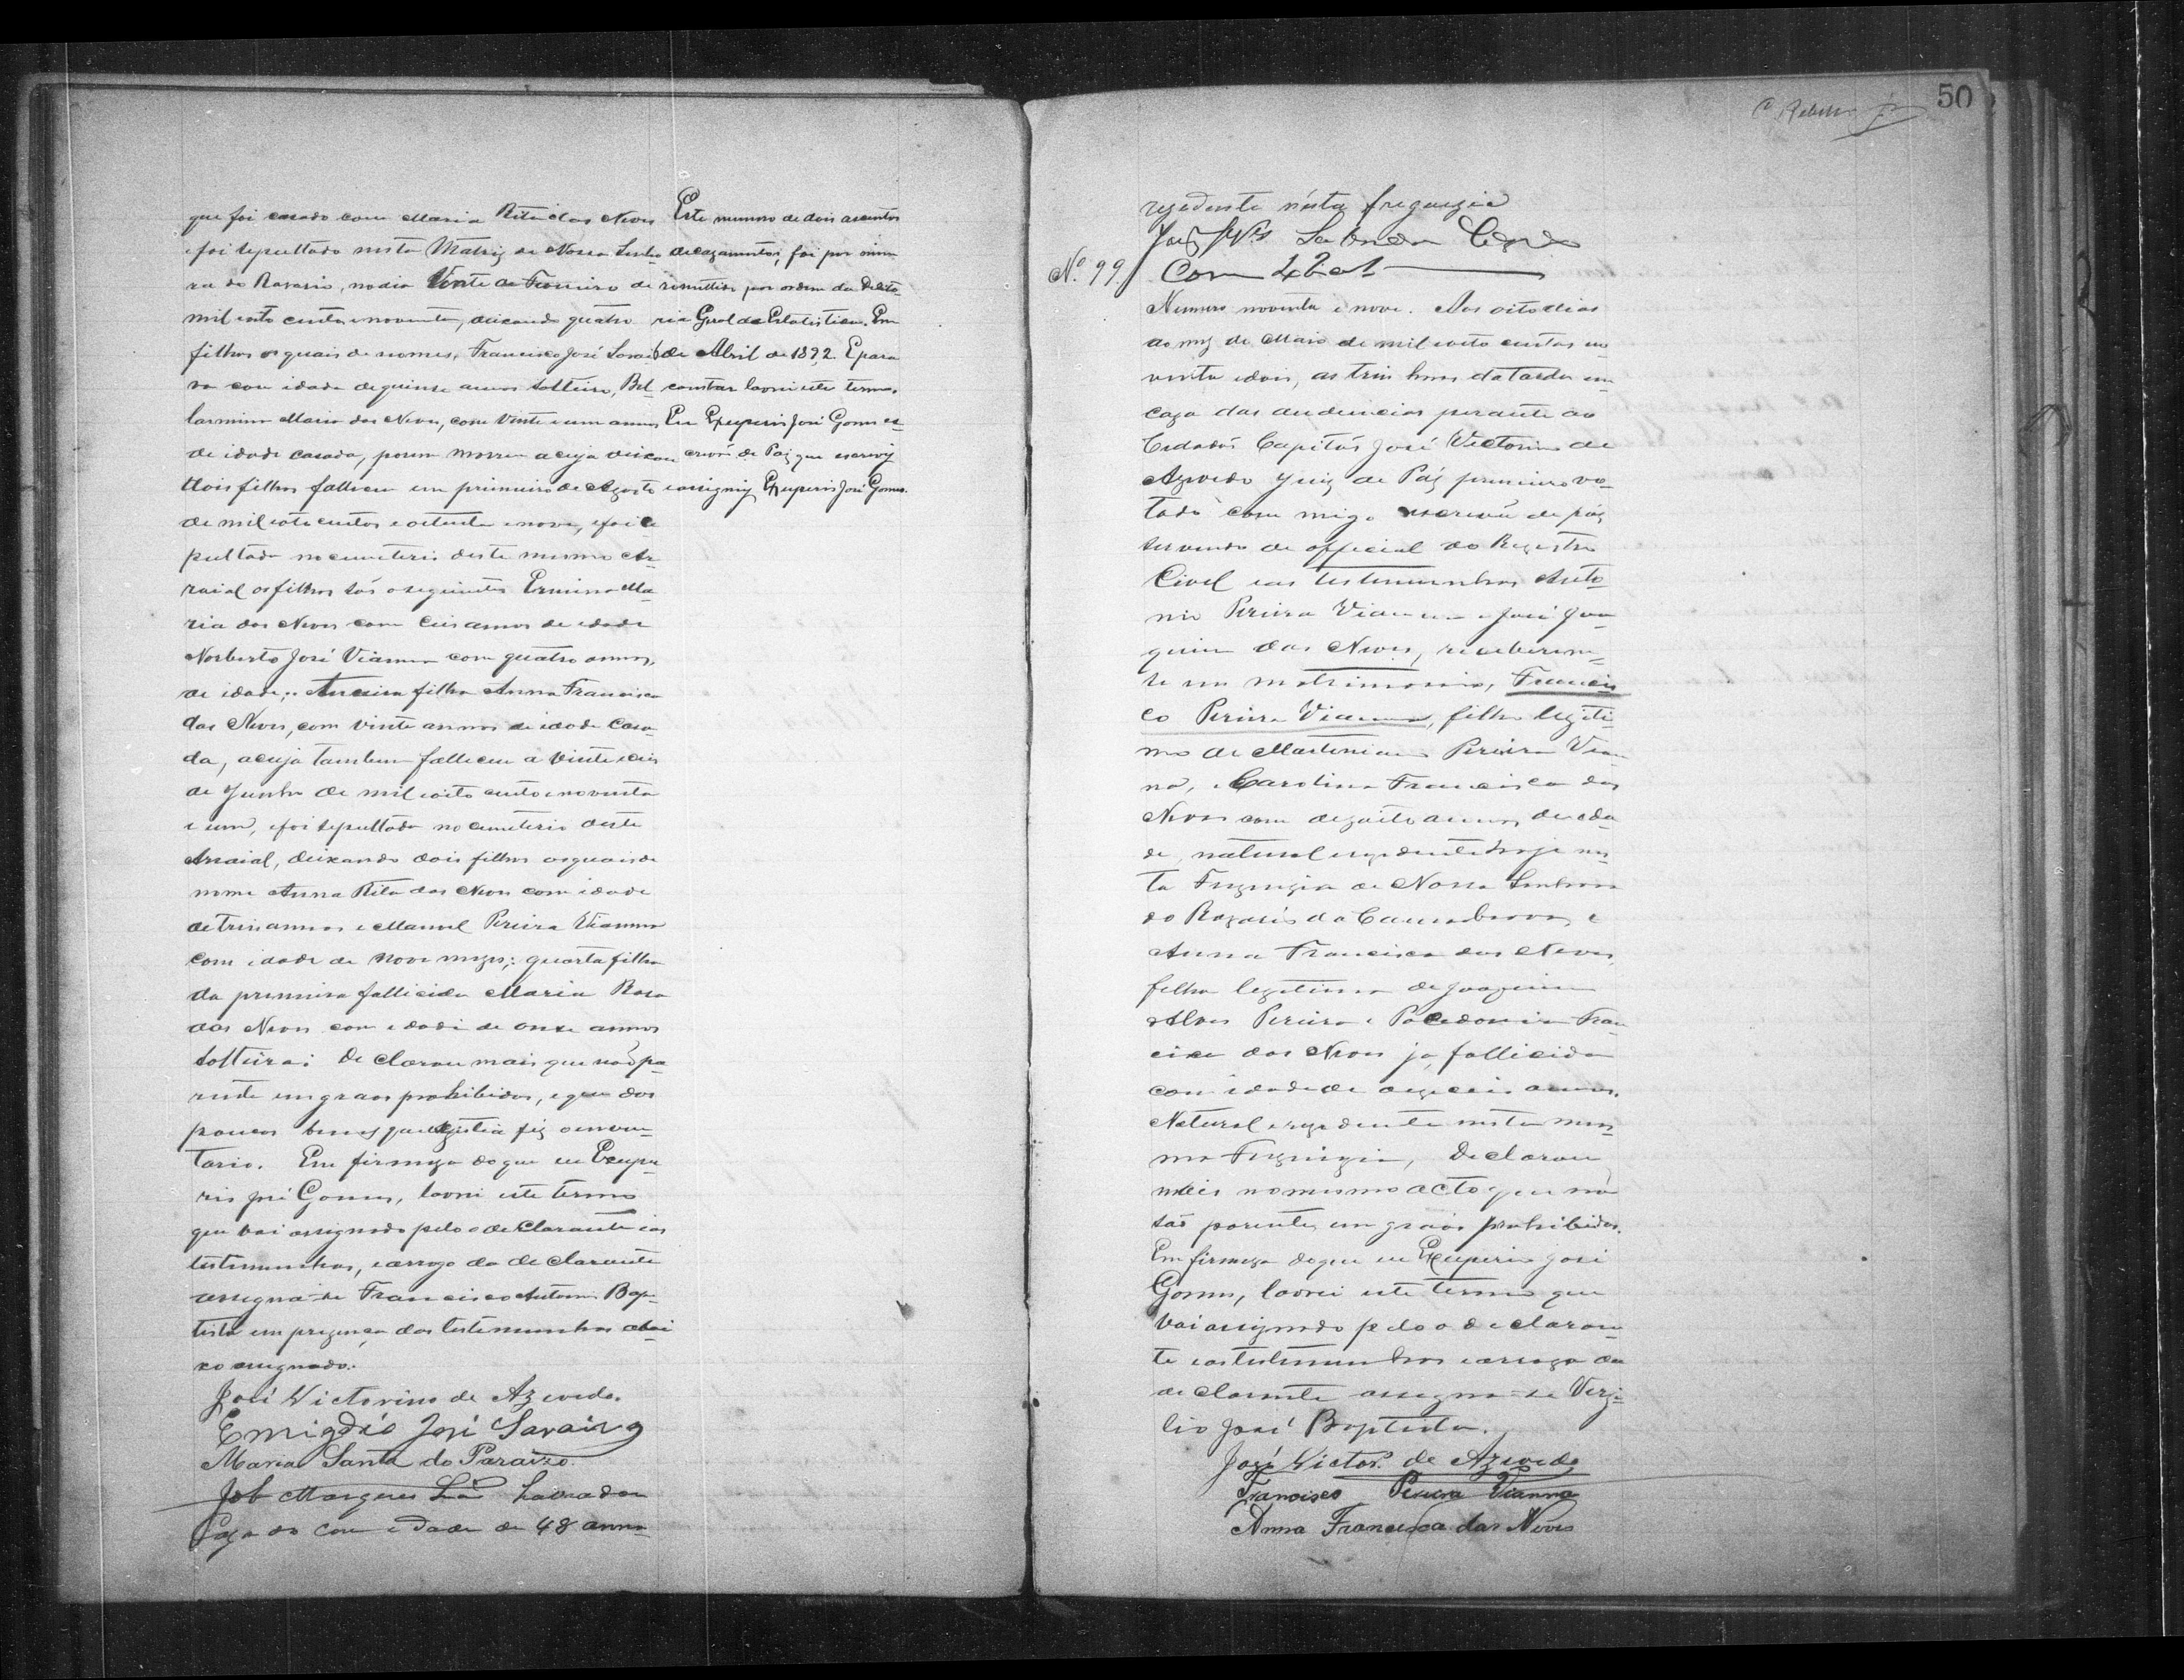 que foi casado com Maria Rita das Neves
e foi sepultado nesta Matriz de Nossa Senho
ra do Rosario, no dia Vinte de Fevereiro de
mil oito centos e noventa, deicando quatro
filhos os quais de nomes, Francisco José Sarai
va com idade de quinse annos solteiro, Bel
larmina Maria das Neves, com vinte e um annos
de idade casada, porem morreu a cuja deixou
dois filhos falleceu em primeiro de Agosto
de mil oito centos e oitenta e nove, e foi se
pultada no cemeterio deste mesmo Ar
raial os filhos são o seguintes Ermina Ma
ria das Neves com Ceis annos de idade
Norberto José Vianna com quatro annos,
de idade; Terceira filha Anna Francisca
das Neves, com vinte annos de idade Casa
da, a cuja tambem falleceu a vinte e ceis
de Junho de mil oito cento e noventa
e um, e foi sepultada no cemeterio deste
Arraial, deixando dois filhos os quais de
nome Anna Rita das Neves com idade
de tres annos e Manoel Pereira Vianna
com idade de nove mezes; quarta filha
da primeira fallicida Maria Rosa
das Neves com idade de onze annos
solteira; Declarou mais que não pa
rente em graos prohibidos, e que dos
poucos bens que existia fez o enven
tario. Em firmeza do que eu Exupe
rio José Gomes, lavrei este termo
que vai assignado pelo o declarante e as
testimunhas, e arrogo da declarante
assigna-se Francisco Antonio Bap
tista em prezença das testimunhas abai
xo assignado.
José Victorino de Azevedo.
Emigdio José Saraiva
Maria Santa do Paraizo.
Job Marques Lavrador
Cazado com idade de 48 anno
Este numero de dois acentos
de cazamentos, foi por mim
remittido por ordem da Deito
ria Geral da Estatistica. Em
6 de Abril de 1892. E para
constar lavrei este termo.
Eu Exuperio José Gomes es
crivão de Paz que escrevi
e assigney Exuperio José Gomes.
50
rezedente nésta freguezia
Com 42 a
Nº. 99
Numero noventa e nove. Aos oito dias
do mez de Maio de mil oito centos no
venta e dois, as tres horas da tarde em
caza das audiencias perante ao
Cidadão Capitão José Victorino de
Azevedo Juiz de Páz primeiro vo
tado comigo escrivão de páz
servindo de official do Registro
Civel e as testimunhas Anto
nio Pereira Vianna e José Joa
quim das Neves, receberem
se em matrimonio, Francis
co Pereira Vianna, filho legiti
mo de Martiniano Pereira Vian
na, e Carolina Francisca das
Neves com dezoito annos de eda
de, natural e rezedente hoje nes
ta Freguezia de Nossa Senhora
do Rozario da, e
Anna Francisca das Neves,
filha legitima de Joaquim
Alves Pereira e Fran
cisca das Neves ja fallicida
com idade de dezeceis annos.
Natural e rezedente nesta mes
ma Freguezia, Declarou
mais no mesmo acto que não
são parentes em graos prohibidos.
Em firmeza do que eu Exuperio José
Gomes, lavrei este termo que
vai assignado pelo o declaran
te e as testimunhas e arrogo da
declarante assigna-se Verji
lio José Baptista.
José Victor. de Azevedo
Francisco Pereira Vianna
Anna Francisca das Neves